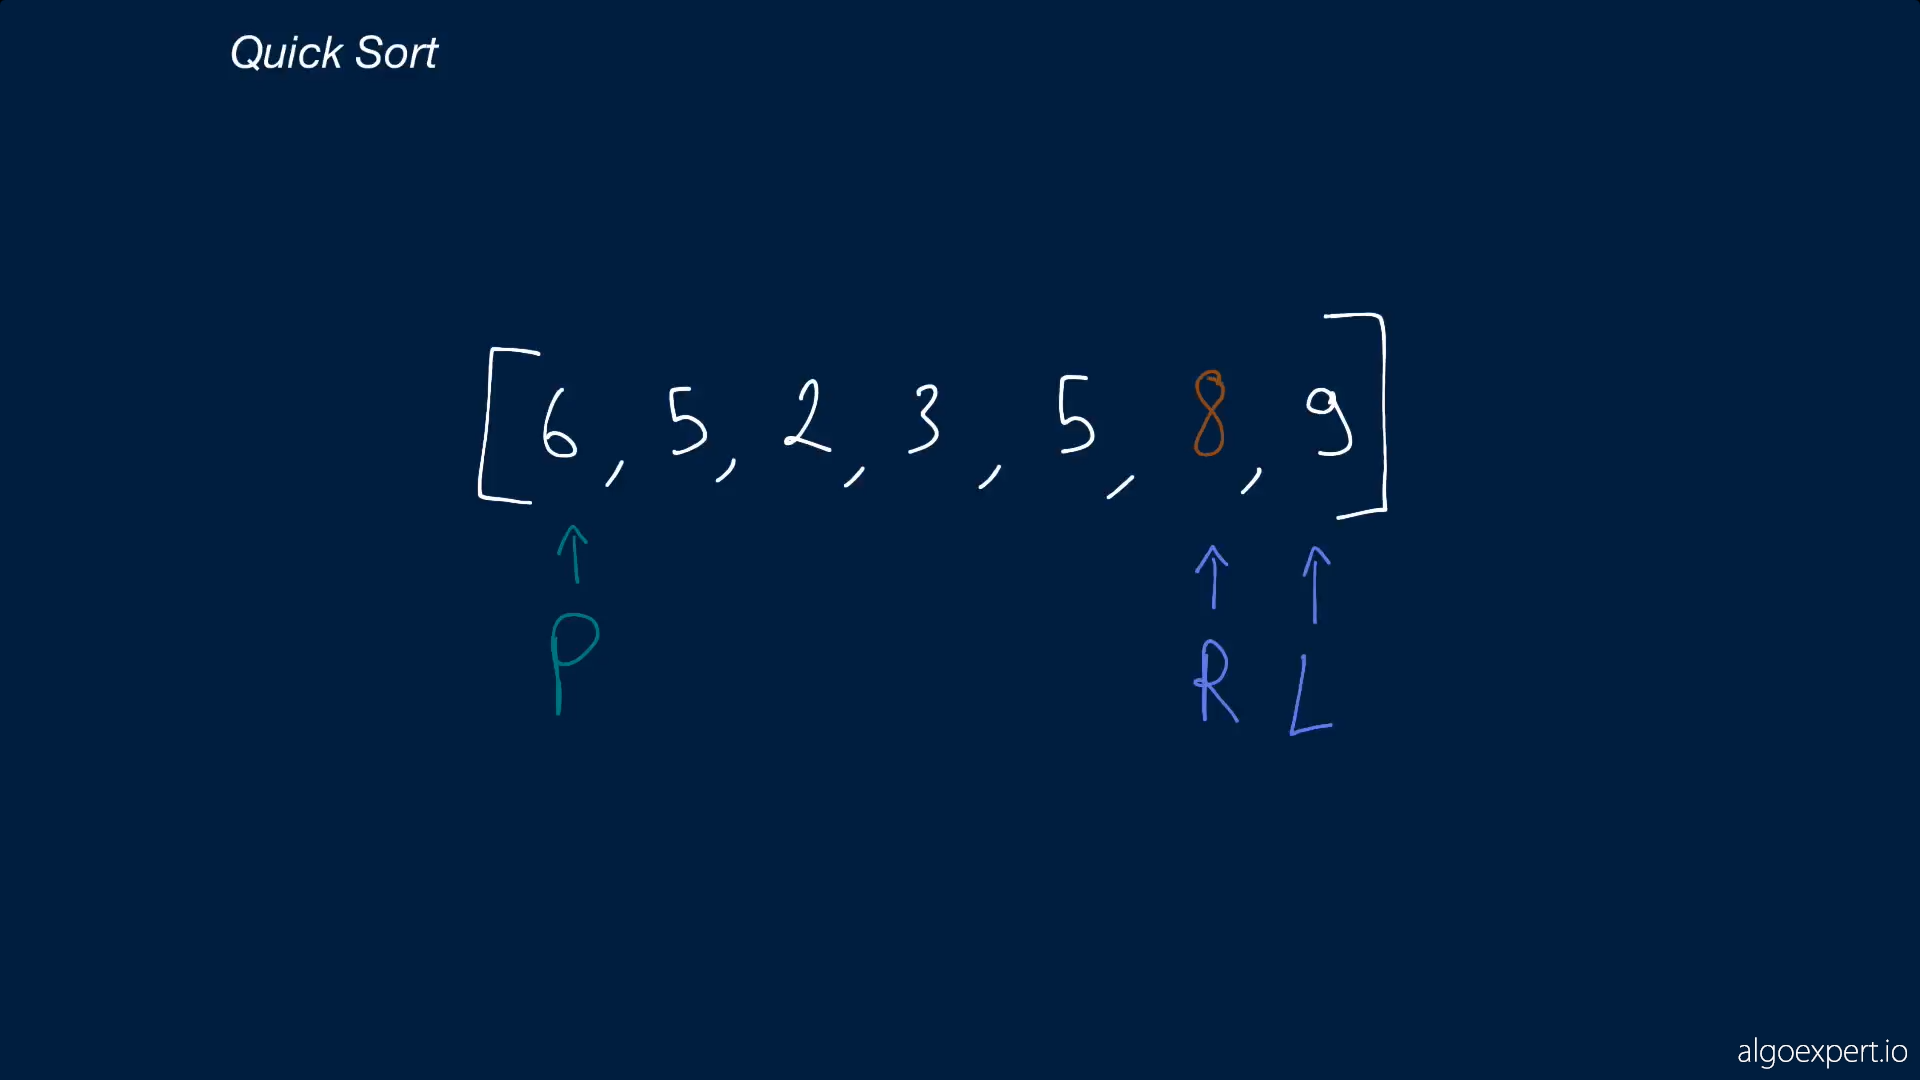 Quick Sort
[6, 5, 2, 3, 5, 8, 9]
↑ ↑ ↑
P R L
algoexpert.io